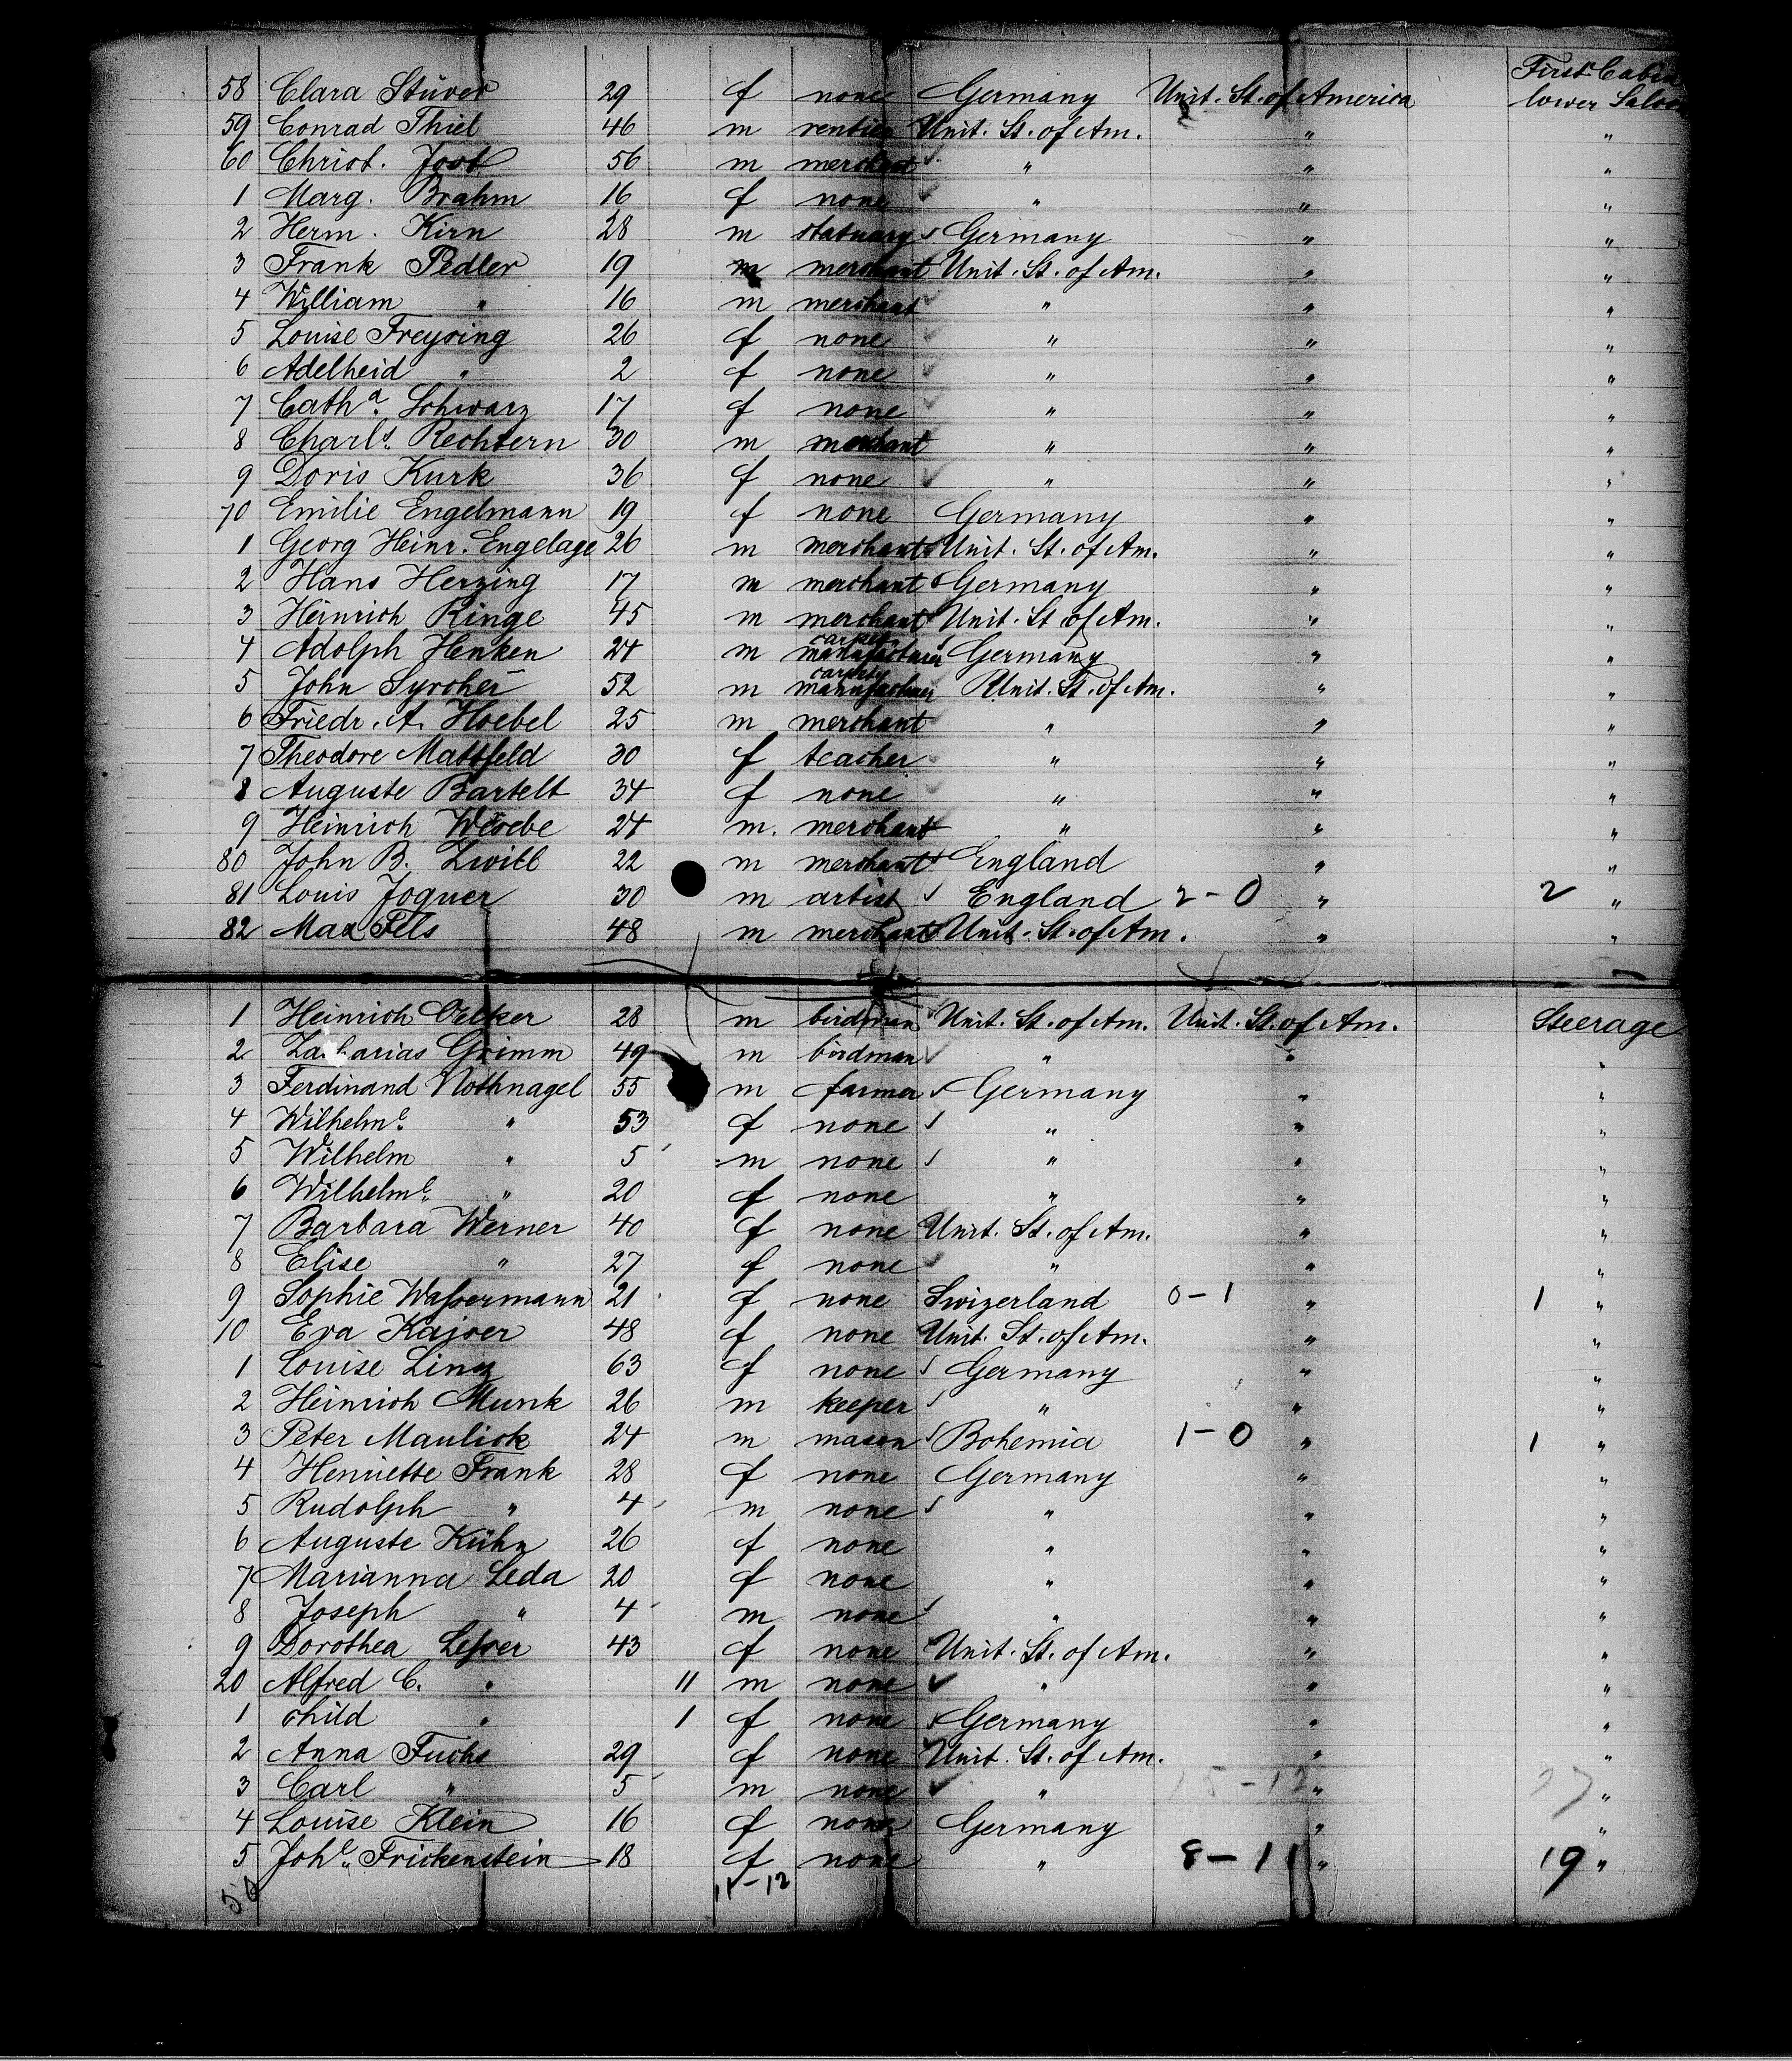 First Cabin
58 Clara Stüver 29 f none Germany Unit. St. of America lower Saloon
59 Conrad Thiel 46 m rentier Unit. St. of Am. " "
60 Christ. Joost 56 m merchant " " "
1 Marg. Brahm 16 f none " " "
2 Herm. Kirn 28 m statuary Germany " "
3 Frank Pedler 19 m merchant Unit. St. of Am. " "
4 William " 16 m merchant " " "
5 Louise Freysing 26 f none " " "
6 Adelheid " 2 f none " " "
7 Catha. Schwarz 17 f none " " "
8 Charls. Rechtern 30 m merchant " " "
9 Doris Kurk 36 f none " " "
70 Emilie Engelmann 19 f none Germany " "
1 Georg Heinr. Engelage 26 m merchant Unit. St. of Am. " "
2 Hans Herzing 17 m merchant Germany " "
3 Heinrich Ringe 45 m merchant Unit. St. of Am. " "
4 Adolph Henken 24 m manufacturer Germany " "
5 John Syrcher 52 m manufacturer Unit. St. of Am. " "
6 Friedr. A. Hoebel 25 m merchant " " "
7 Theodore Mattfeld 30 f teacher " " "
8 Auguste Bartelt 34 f none " " "
9 Heinrich 24 m. merchant " " "
80 John B. Zwill 22 m merchant England " "
81 Louis Joguer 30 m artist England 2-0 " 2 "
82 Max Fels 48 m merchant Unit. St. of Am. " "
1 Heinrich Oelker 28 m birdman Unit. St. of Am. Unit. St. of Am. Steerage
2 Zacharias Grimm 49 m birdman " " "
3 Ferdinand Nothnagel 55 m farmer Germany " "
4 Wilhelme. " 53 f none " " "
5 Wilhelm " 5 m none " " "
6 Wilhelme. " 20 f none " " "
7 Barbara Werner 40 f none Unit. St. of Am. " "
8 Elise " 27 f none " " "
9 Sophie Waßermann 21 f none Swizerland 0-1 " 1 "
10 Eva Kajser 48 f none Unit. St. of Am. " "
1 Louise Linz 63 f none Germany " "
2 Heinrich Munk 26 m keeper " " "
3 Peter Maulick 24 m mason Bohemia 1-0 " 1 "
4 Henriette Frank 28 f none Germany " "
5 Rudolph " 4 m none " " "
6 Auguste Kühn 26 f none " " "
7 Marianna Leda 20 f none " " "
8 Joseph " 4 m none " " "
9 Dorothea Leßer 43 f none Unit. St. of Am. " "
20 Alfred C. " 11 m none " " "
1 child " 1 f none Germany " "
2 Anna Fuchs 29 f none Unit. St. of Am. " "
3 Carl " 5 m none " 15-12 " 27 "
4 Louise Klein 16 f none Germany " "
5 Johe. Frickenstein 18 f none " 8-11 " 19 "